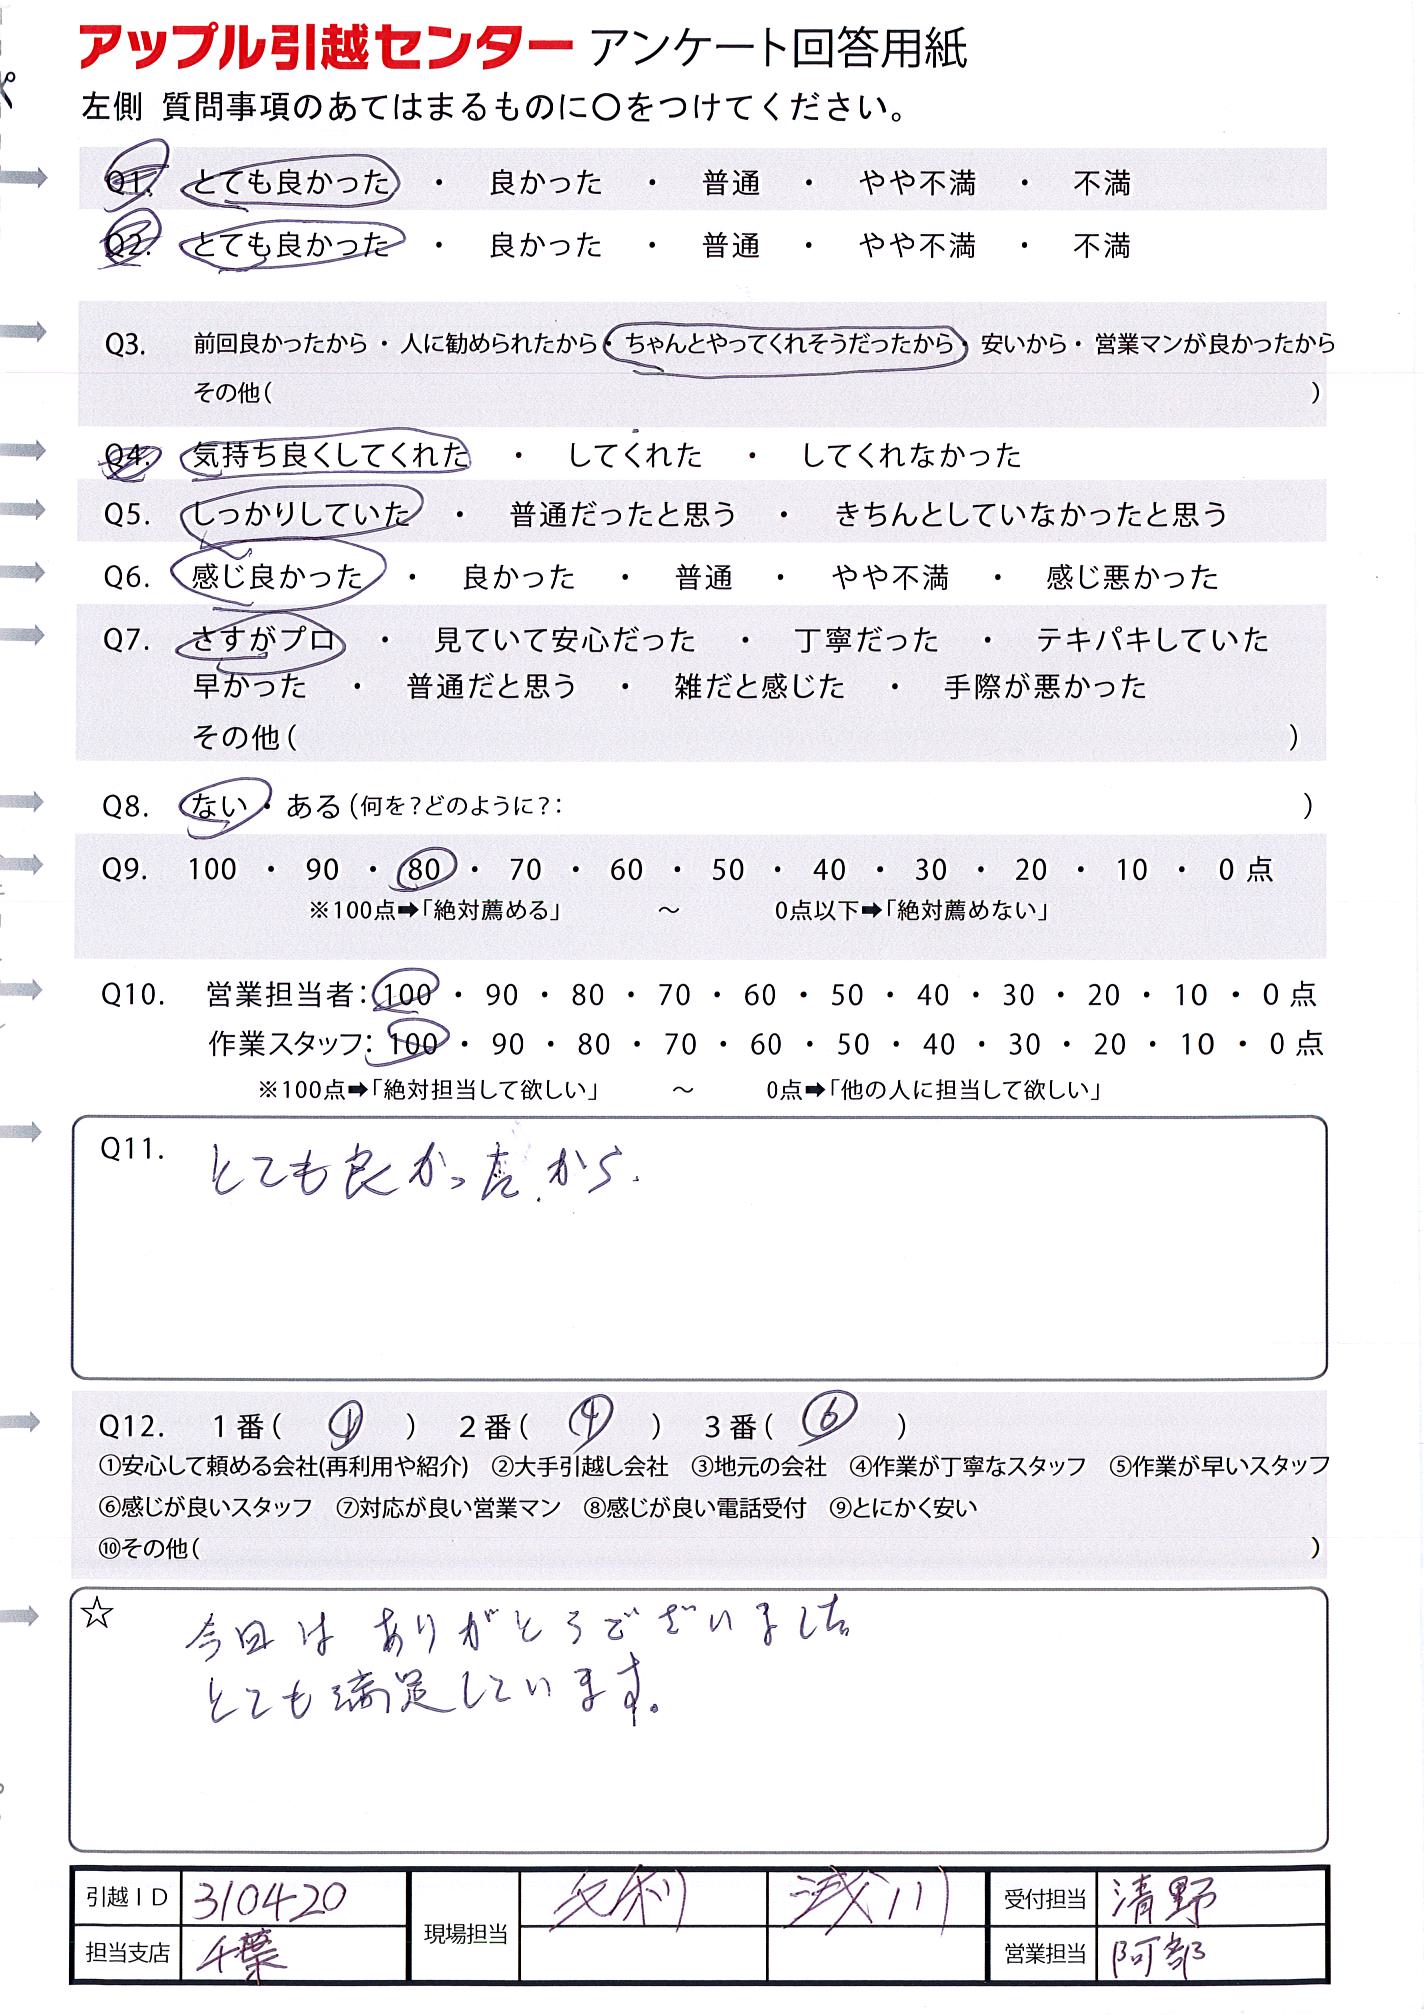 アップル引越センター アンケート回答用紙
左側 質問事項のあてはまるものに〇をつけてください。
Q1. とても良かった ・ 良かった ・ 普通 ・ やや不満 ・ 不満
Q2. とても良かった ・ 良かった ・ 普通 ・ やや不満 ・ 不満
Q3. 前回良かったから・人に勧められたから・ちゃんとやってくれそうだったから・安いから・営業マンが良かったから
その他( )
Q4. 気持ち良くしてくれた ・ してくれた ・ してくれなかった
Q5. しっかりしていた ・ 普通だったと思う ・ きちんとしていなかったと思う
Q6. 感じ良かった ・ 良かった ・ 普通 ・ やや不満 ・ 感じ悪かった
Q7. さすがプロ ・ 見ていて安心だった ・ 丁寧だった ・ テキパキしていた
早かった ・ 普通だと思う ・ 雑だと感じた ・ 手際が悪かった
その他( )
Q8. ない・ある(何を?どのように?: )
Q9. 100 ・ 90 ・ 80 ・ 70 ・ 60 ・ 50 ・ 40 ・ 30 ・ 20 ・ 10 ・ 0 点
※100点➡「絶対薦める」 ～ 0点以下➡「絶対薦めない」
Q10. 営業担当者：100 ・ 90 ・ 80 ・ 70 ・ 60 ・ 50 ・ 40 ・ 30 ・ 20 ・ 10 ・ 0 点
作業スタッフ：100 ・ 90 ・ 80 ・ 70 ・ 60 ・ 50 ・ 40 ・ 30 ・ 20 ・ 10 ・ 0 点
※100点➡「絶対担当して欲しい」 ～ 0点➡「他の人に担当して欲しい」
Q11. とても良かったから.
Q12. 1番( ① ) 2番( ④ ) 3番( ⑥ )
①安心して頼める会社(再利用や紹介) ②大手引越し会社 ③地元の会社 ④作業が丁寧なスタッフ ⑤作業が早いスタッフ
⑥感じが良いスタッフ ⑦対応が良い営業マン ⑧感じが良い電話受付 ⑨とにかく安い
⑩その他( )
☆ 今回はありがとうございました
とても満足しています。
引越ID 310420 現場担当 毛利 浅川 受付担当 清野
担当支店 千葉 営業担当 阿部